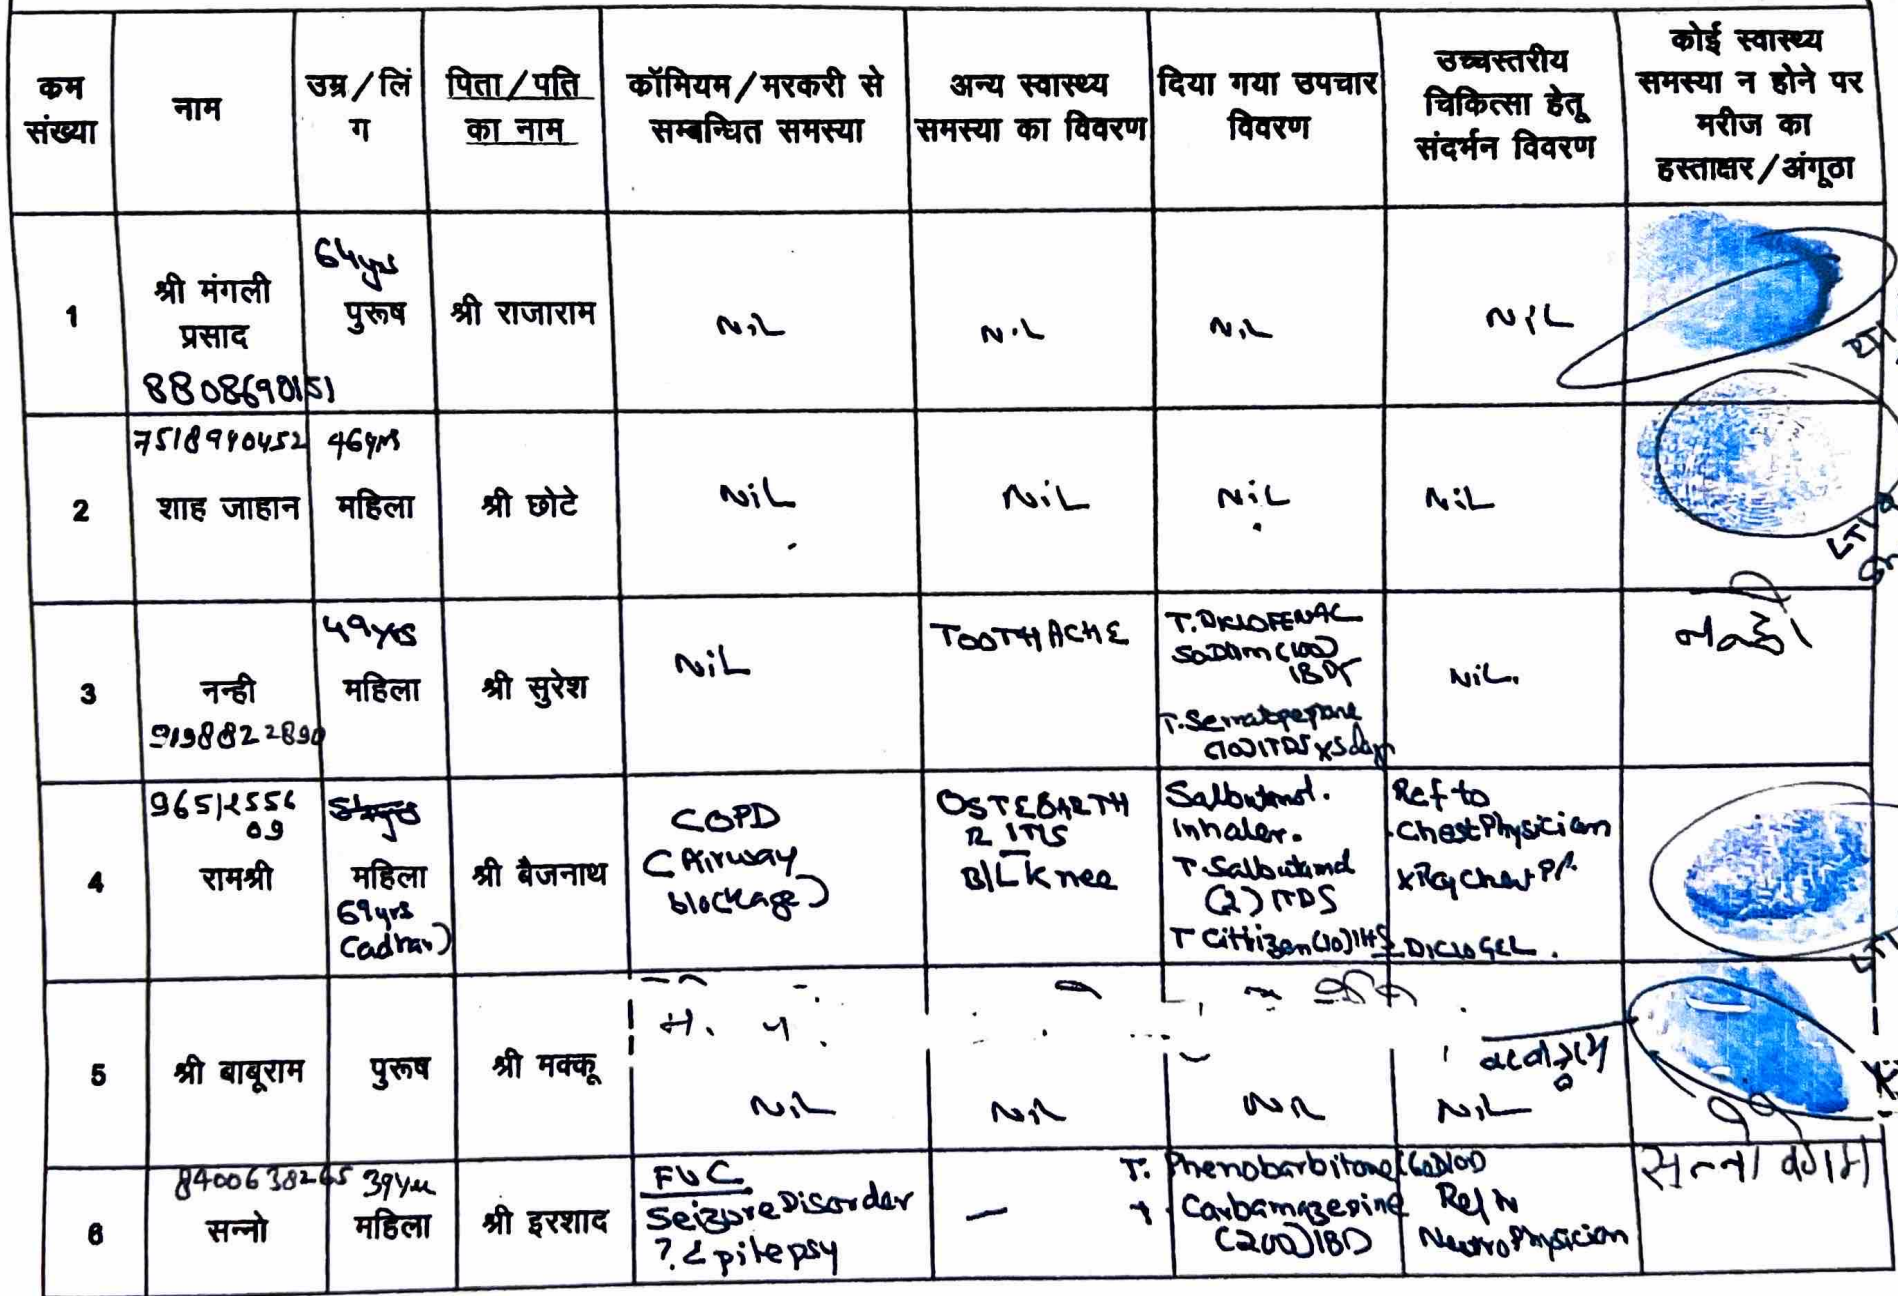 कम संख्या
नाम
उम्र/लिंग
पिता/पति का नाम
कॉमियम/मरकरी से सम्बन्धित समस्या
अन्य स्वास्थ्य समस्या का विवरण
दिया गया उपचार विवरण
उच्चस्तरीय चिकित्सा हेतू संदर्भन विवरण
कोई स्वास्थ्य समस्या न होने पर मरीज का हस्ताक्षर/अंगूठा
1
श्री मंगली
प्रसाद
8808690151
64yrs
पुरूष
श्री राजाराम
NiL
NiL
NiL
NiL
2
7518940452
शाह जाहान
46yrs
महिला
श्री छोटे
NiL
NiL
NiL
NiL
3
नन्ही
9198822890
49yrs
महिला
श्री सुरेश
NiL
TOOTHACHE
T. DICLOFENAC
SODIUM (100)
1BD
T. Serratopeptidase
(10) 1TDS x 5days
NiL.
नन्ही
4
9651255609
रामश्री
महिला
69yrs
(adhar)
श्री बैजनाथ
COPD
(Airway
blockage)
OSTEOARTH
RITIS
B/L Knee
Salbutamol.
Inhaler.
T. Salbutamol
(2) 1TDS
T Cittizen (10) 1HS
Ref to
Chest Physician
X Ray Chest PA
DICLO GEL.
5
श्री बाबूराम
पुरूष
श्री मक्कू
NiL
NiL
NiL
NiL
6
8400638265
सन्नो
39yrs
महिला
श्री इरशाद
FUC
Seizure Disorder
? Epilepsy
—
T. Phenobarbitone (60) OD
Carbamazepine
(200) 1BD
Ref to
Neuro Physician
सन्नो बेगम